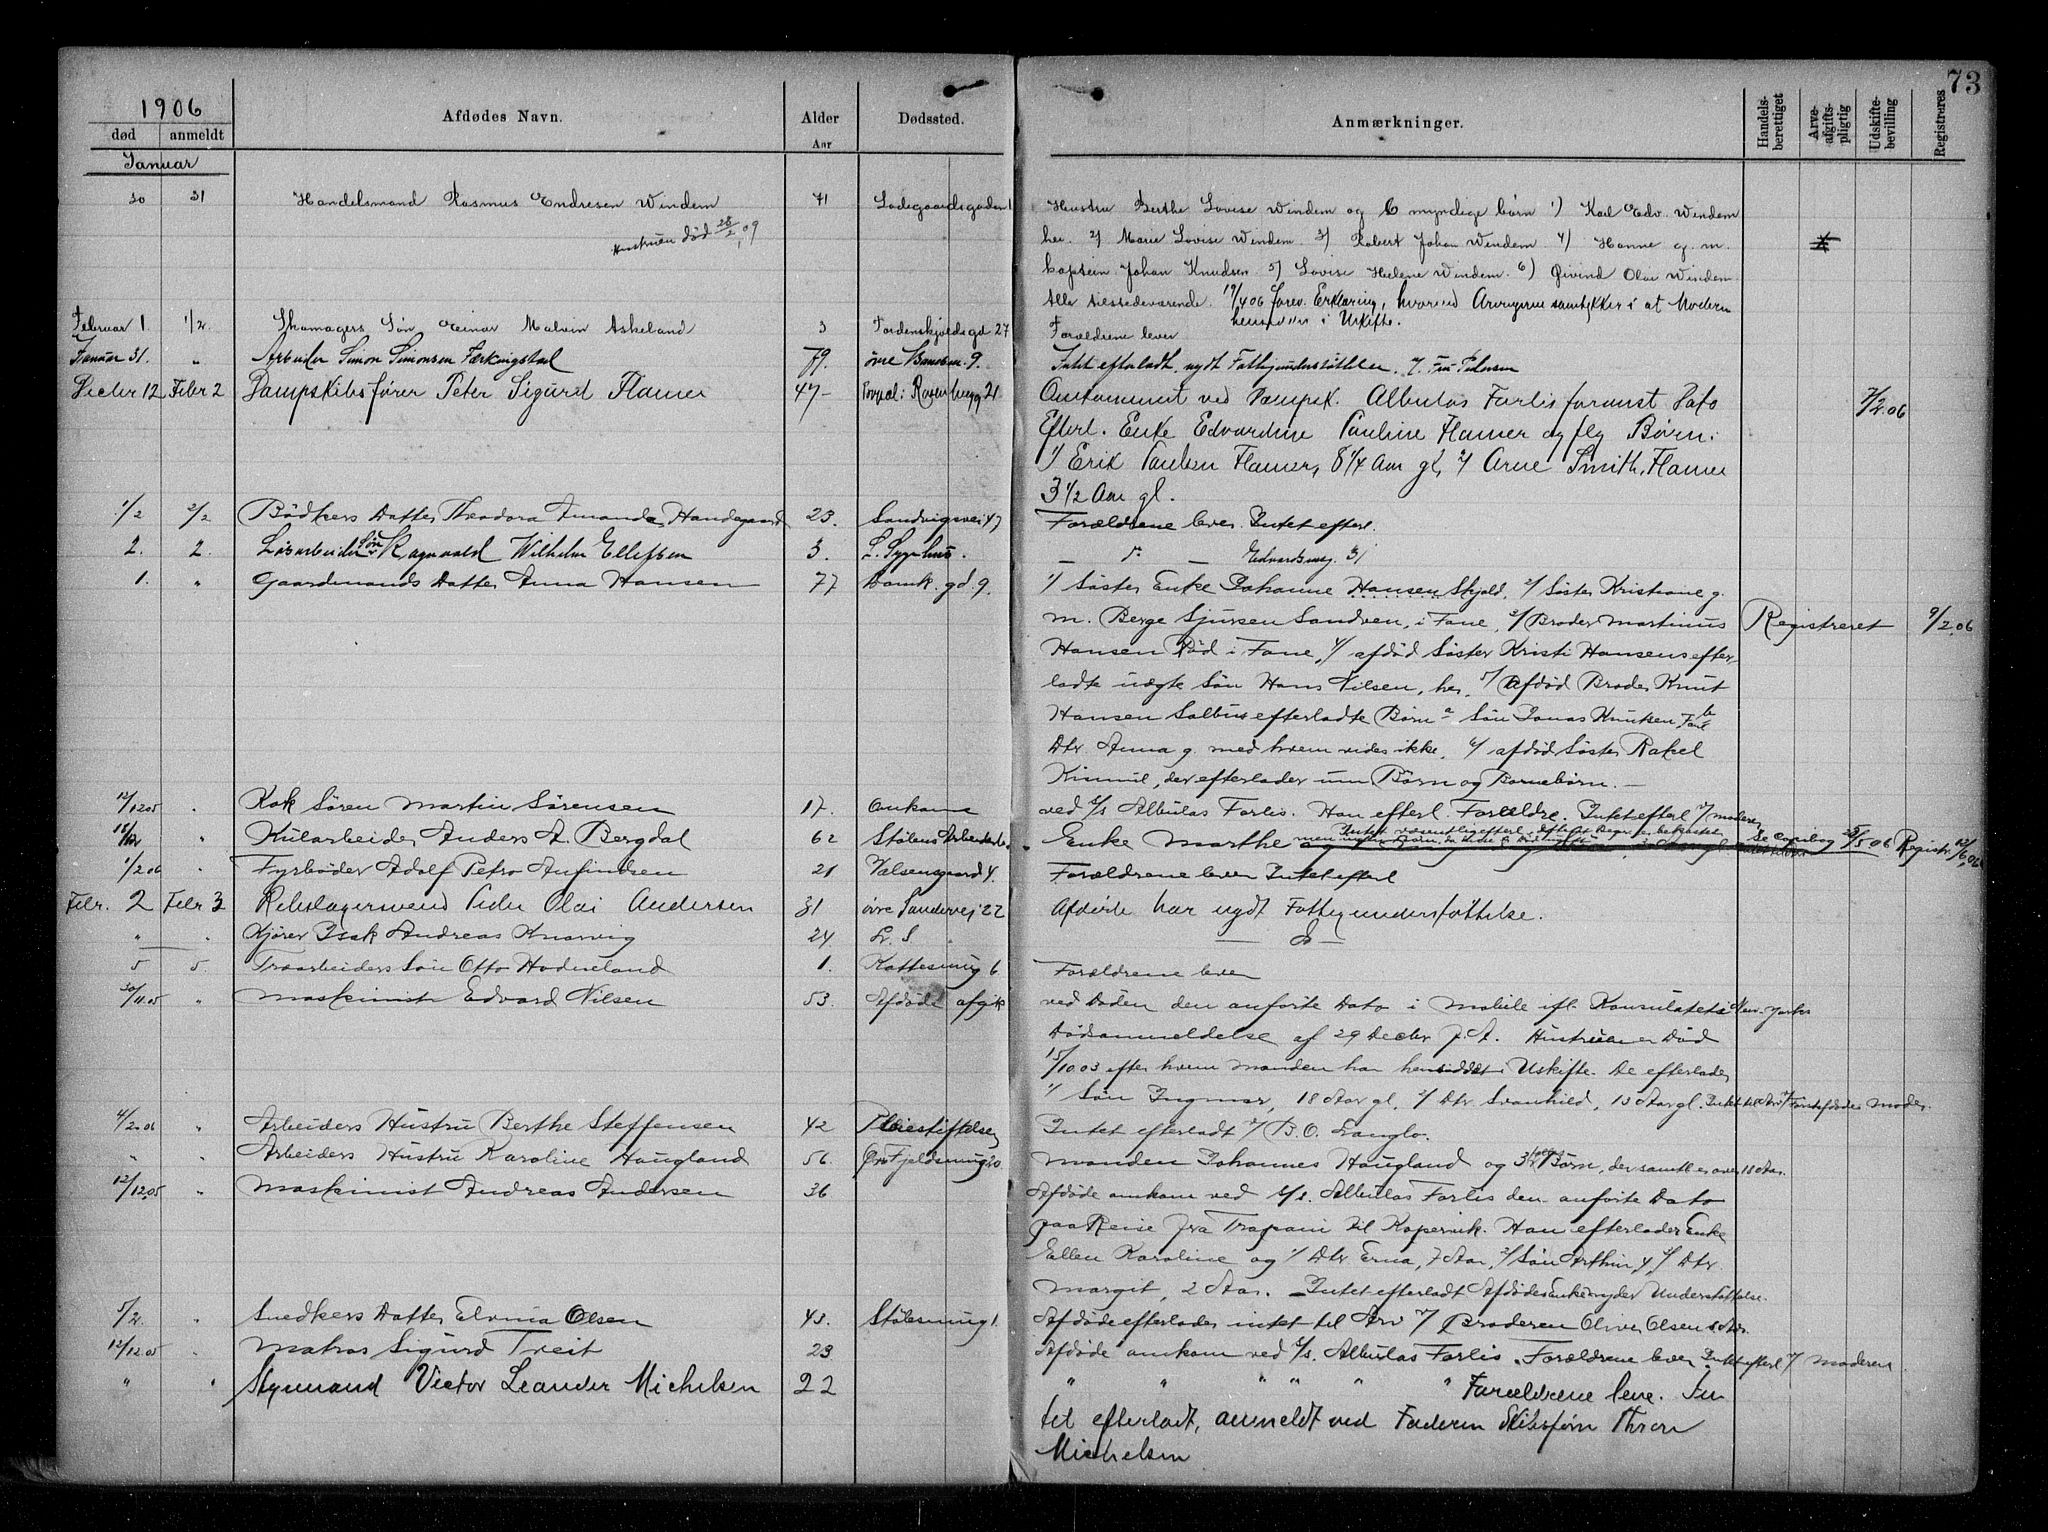 73
1906
død anmeldt Afdødes Navn. Alder Aar Dødssted. Anmærkninger. Handelsberettiget Arveafgiftspligtig Udskiftebevilling Registreres
Januar
30 31 Handelsmand Rasmus Endresen Windem 71 Ladegaardsgaden 1 Hustru Berthe Lovise Windem og 6 myndige børn 1) Karl Edv. Windem
Hustruen død 28/2 09 her. 2) Marie Lovise Windem 3) Robert Johan Windem 4) Hanne g. m.
kaptein Johan Knudsen 5) Lovise Helene Windem 6) Øivind Olai Windem
Alle tilstedeværende. 19/4 06 Erklæring, hvorved Arvingerne samtykker i at Moderen
hensidder i Uskifte.
Februar 1. 1/2. Skomagers Søn Einar Malvin Askeland 3 Tordenskjoldsgd 27 Forældrene lever
Januar 31. " Arbeider Simon Simonsen Færkingstad 79. øvre 9. Intet efterladt, nydt Fattigunderstøttelse. Fru Pedersen
Decbr 12 Febr 2 Dampskibsfører Peter Sigurd Flamer 47 - 21 Omkommet ved Dampsk. Albulas Forlis foranst Dato 7/2.06
Efterl. Enke Edvardine Pauline Flamer og flg Børn:
1) Erik Paulsen Flamer, 8 1/4 Aar gl, 2) Arne Smith Flamer
3 1/2 Aar gl.
1/2 2/2 Bødkers Datter Theodora Amanda Handegaard 23. Sandvigsvei 47 Forældrene lever. Intet efterl.
2. 2. Løsarbeider Søn Ragnvald Wilhelm Ellefsen 3. L. Sygehus. — " —
1. " Gaardmands Datter Anna Hansen 77 Domk. gd. 9. 1) Søster Enke Johanne Hansen Skjold, 2) Søster Kristiane g.
m. Berge Sjursen Sandven, i Fane, 3) Broder Martinus Registreret 9/2.06
Hansen Rød i Fane, 4) afdød Søster Kristi Hansens efter-
ladte uægte Søn Hans Nilsen, her, 5) Afdød Broder Knut
Hansen Salbus efterladte Børn a Søn Jonas Knutsen Fane b
Dtr. Anna g. med hvem vides ikke, 6) afdød Søster Rakel
Kismul, der efterlader Børn og Barnebørn. —
12/12 05 " Kok Søren Martin Sørensen 17. omkom ved S/S Albulas Forlis. Han efterl. Forældre. Intet efterl v/ moderen
" Kularbeider Anders A. Bergdal 62 Stølens Enke Marthe 5 06 Registr.
1/2 06 " Fyrbøder Adolf Petro Anfindsen 21 4. Forældrene lever Intet efterl
Febr. 2 Febr 3 Rebslagersvend Peder Olai Andersen 31 øvre Sandvei 22 Afdøde har nydt Fattigunderstøttelse.
" " Kjører Isak Andreas Knarvig 24. L. S. — " —
5 5. Træarbeiders Søn Otto Hodneland 1. Kattesmug 6 Forældrene lever
30/11.05 " Maskinist Edvard Nilsen 53. Afdøde afgik ved Døden den anførte Dato i Mobile ifl. Konsulatets i New-Yorks
Dødsanmeldelse af 29 Decbr f. A. Hustruen er Død
15/10.03 efter hvem manden har hensiddet i Uskifte. De efterlader
1) Søn Ingmar, 18 Aar gl, 2) Dtr Svanhild, 15 Aar gl. Intet til Arv v/ Førstafdødes Moder.
4/2.06 " Arbeiders Hustru Berthe Steffensen 42 Pleiestiftelsen Intet efterladt v/ B. O. Langlo.
" " Arbeiders Hustru Karoline Haugland 56. Øvre Fjeldsmug 20. Manden Johannes Haugland og 3 Børn, der samtl er over 18 Aar.
12/12.05 " Maskinist Andreas Andersen 36 Afdøde omkom ved S/S. Albulas Forlis den anførte Dato
paa Reise fra Trapani til Kopervik. Han efterlader Enke
Ellen Karoline og 1) Dtr Erna, 7 Aar, 2) Søn Arthur, 4, 3) Dtr.
Margit, 2 Aar. — Intet efterladt Afdødes Enke nyder Understøttelse.
5/2. " Snedkers Datter Elvina Olsen 43. Stølesmug 1. Afdøde efterlader intet til Arv v/ Broderen Oliver Olsen
12/12.05 " Matros Sigurd Treit 23 Afdøde omkom ved S/S. Albulas Forlis. Forældrene lever Intet efterl v/ moderen.
" " Styrmand Victor Leander Michelsen 22 " " " " " " Forældrene leve. In
tet efterladt, anmeldt ved Faderen Skibsfører Thron
Michelsen